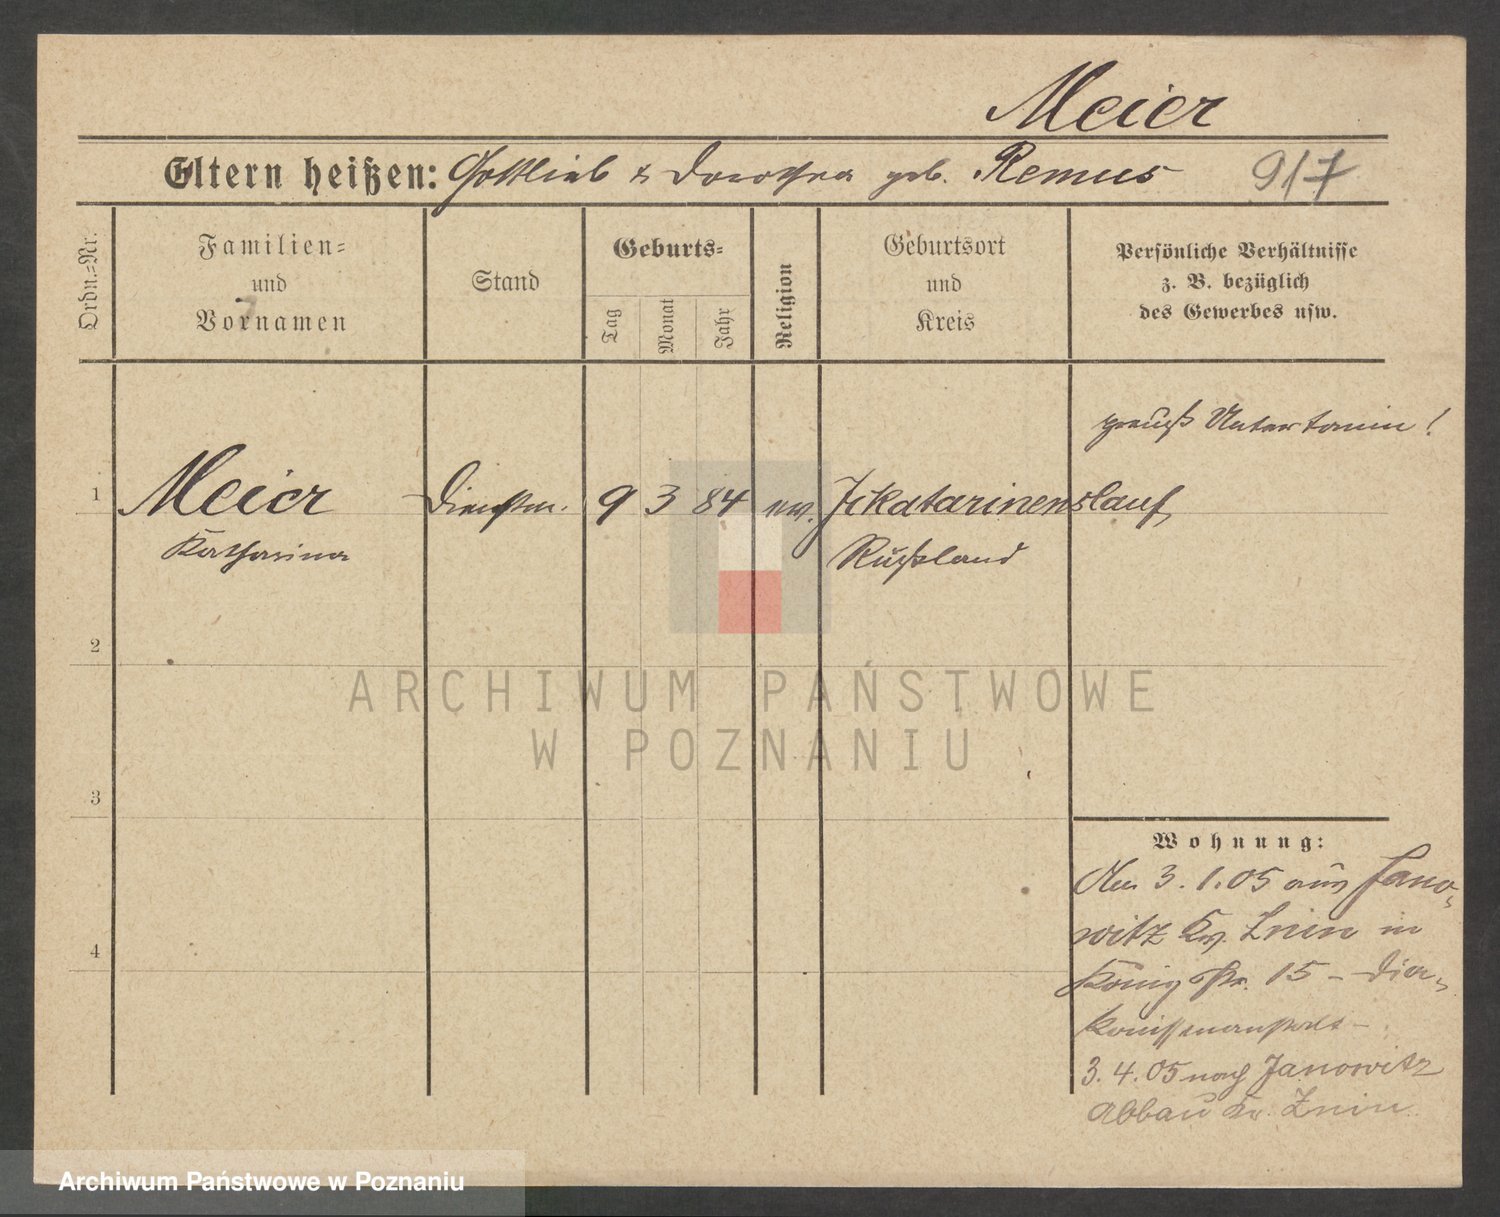 Meier
Eltern heißen: Gottlieb & Dorothea geb. Remus 9/7
Ordn.=Nr.
Familien=
und
Vornamen
Stand
Geburts=
Tag
Monat
Jahr
Religion
Geburtsort
und
Kreis
Persönliche Verhältnisse
z. B. bezüglich
des Gewerbes usw.
preuß Untertanin!
1 Meier Dienstm. 9 3 84 ev. Jekatarinenslauf,
Katharina Rußland
2
3
4
Wohnung:
3.1.05 aus Jano-
witz Kr. Znin in
Königstr. 15 - Dia-
konissenanstalt -
3.4.05 nach Janowitz
Abbau Kr. Znin
ARCHIWUM PAŃSTWOWE
W POZNANIU
Archiwum Państwowe w Poznaniu